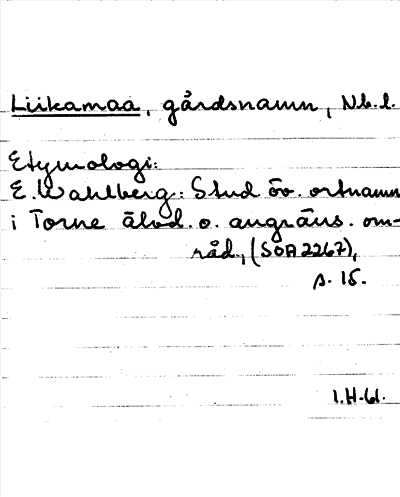 Liikamaa, gårdsnamn, Nb. l.
Etymologi:
E. Wahlberg: Stud öv. ortnamn
i Torne älvd. o. angräns. om-
råd, (SOA 2267),
s. 15.
I.H-61.